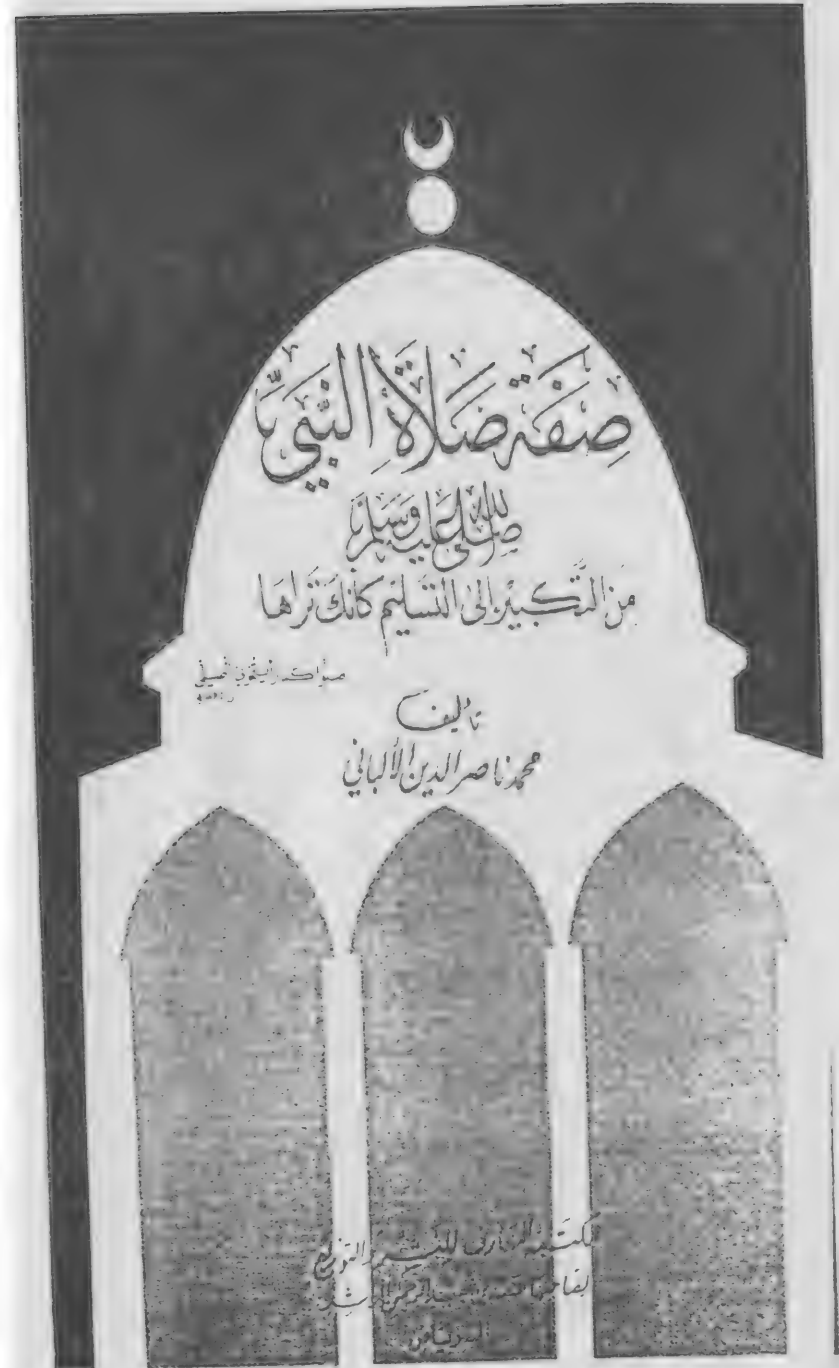 صِفَةُ صَلَاةِ النَّبِيِّ
صَلَّى اللهُ عَلَيْهِ وَسَلَّمَ
مِنَ التَّكْبِيرِ إِلَى التَّسْلِيمِ كَأَنَّكَ تَرَاهَا
تأليف
محمد ناصر الدين الألباني
مكتبة المعارف للنشر والتوزيع
لصاحبها سعد بن عبد الرحمن الراشد
الرياض